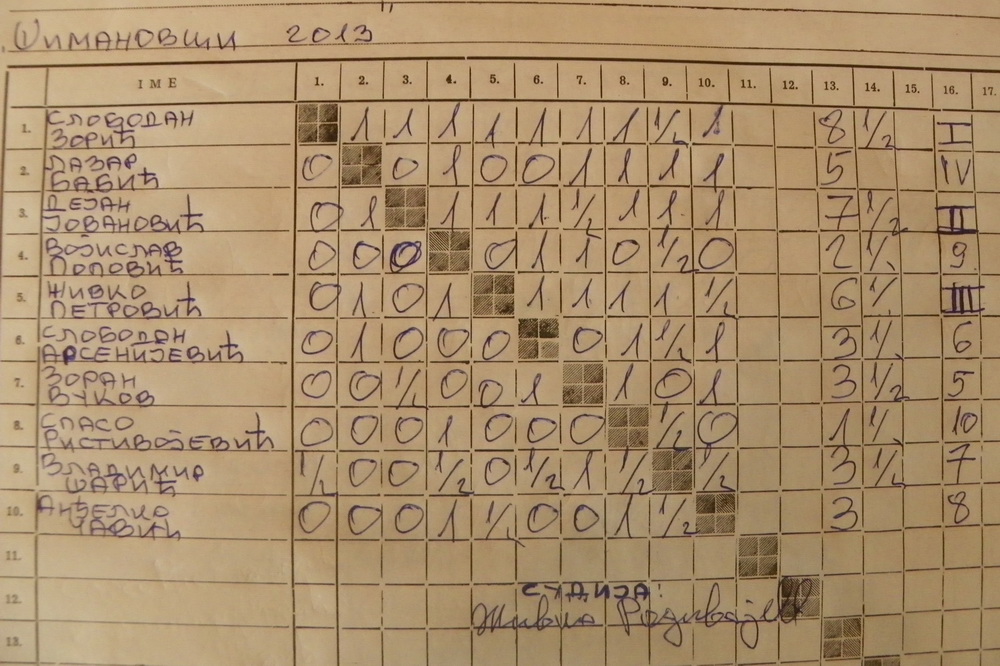 Шимановци 2013
IME 1. 2. 3. 4. 5. 6. 7. 8. 9. 10. 11. 12. 13. 14. 15. 16. 17.
1. СЛОБОДАН ЗОРИЋ 1 1 1 1 1 1 1 1/2 1 8 1/2 I
2. ЛАЗАР БАБИЋ 0 0 1 0 0 1 1 1 1 5 IV
3. ДЕЈАН ЈОВАНОВИЋ 0 1 1 1 1 1/2 1 1 1 7 1/2 II
4. ВОЈИСЛАВ ПОПОВИЋ 0 0 0 0 1 1 0 1/2 0 2 1/2 9
5. ЖИВКО ПЕТРОВИЋ 0 1 0 1 1 1 1 1 1/2 6 1/2 III
6. СЛОБОДАН АРСЕНИЈЕВИЋ 0 1 0 0 0 0 1 1/2 1 3 1/2 6
7. ЗОРАН ВУКОВ 0 0 1/2 0 0 1 1 0 1 3 1/2 5
8. СПАСО РИСТИВОЈЕВИЋ 0 0 0 1 0 0 0 1/2 0 1 1/2 10
9. ВЛАДИМИР ШАРИЋ 1/2 0 0 1/2 0 1/2 1 1/2 1/2 3 1/2 7
10. АНЂЕЛКО ЧАВИЋ 0 0 0 1 1/2 0 0 1 1/2 3 8
11.
12. СУДИЈА:
13.